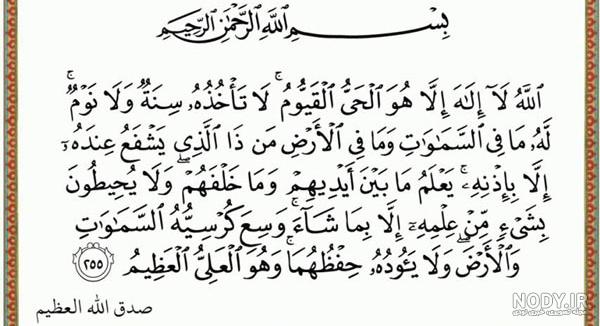 بِسْمِ اللَّهِ الرَّحْمَٰنِ الرَّحِيمِ
اللَّهُ لَآ إِلَٰهَ إِلَّا هُوَ الْحَيُّ الْقَيُّومُ ۚ لَا تَأْخُذُهُۥ سِنَةٌ وَلَا نَوْمٌ ۚ
لَّهُۥ مَا فِي السَّمَٰوَٰتِ وَمَا فِي الْأَرْضِ مَن ذَا الَّذِي يَشْفَعُ عِندَهُۥٓ
إِلَّا بِإِذْنِهِۦ ۚ يَعْلَمُ مَا بَيْنَ أَيْدِيهِمْ وَمَا خَلْفَهُمْ ۖ وَلَا يُحِيطُونَ
بِشَيْءٍ مِّنْ عِلْمِهِۦٓ إِلَّا بِمَا شَآءَ ۚ وَسِعَ كُرْسِيُّهُ السَّمَٰوَٰتِ
وَالْأَرْضَ ۖ وَلَا يَـُٔودُهُۥ حِفْظُهُمَا ۚ وَهُوَ الْعَلِيُّ الْعَظِيمُ ٢٥٥
صدق الله العظيم
NODY.IR